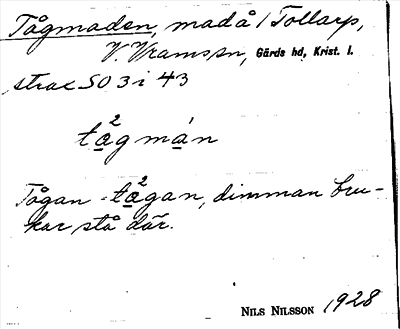 Tågmaden, madå i Tollarp,
V. Vrams sn, Gärds hd, Krist. l.
strax SO 3 i 43
tågmán
Tågan - tågan, dimman bru-
kar stå där.
NILS NILSSON 1928